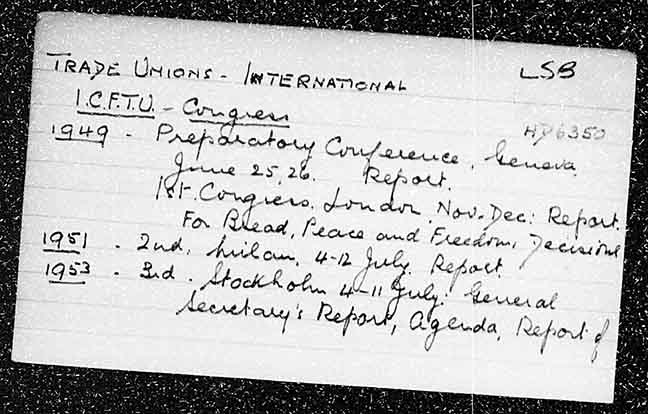 TRADE UNIONS - INTERNATIONAL LSB
I.C.F.T.U. - Congress
HD6350
1949 - Preparatory Conference, Geneva,
June 25, 26. Report.
1st. Congress. London, Nov.-Dec: Report.
For Bread, Peace and Freedom, Decisions
1951 - 2nd, Milan, 4-12 July. Report.
1953 - 3rd. Stockholm 4-11 July: General
Secretary's Report, Agenda, Report of